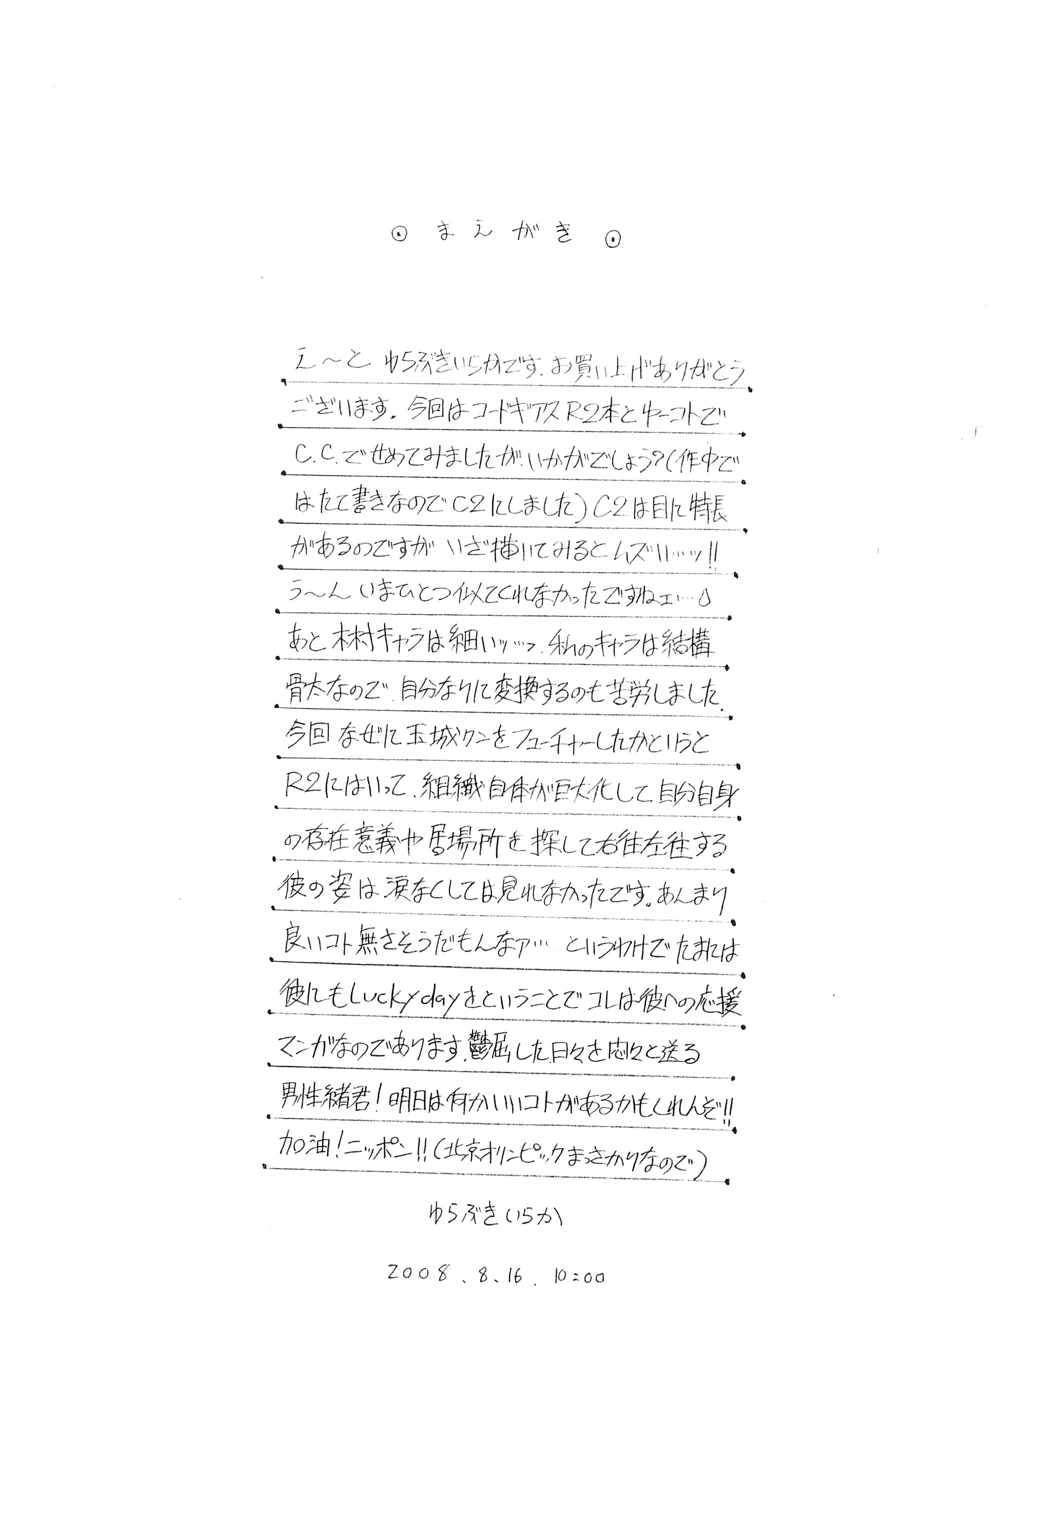 ◉ まえがき ◉
え〜と ゆらぶきいらかです。お買い上げありがとう
ございます。今回はコードギアスR2本とゆーコトで
C.C.でせめてみましたが、いかがでしょう?(作中で
はたて書きなのでC2にしました)C2は目に特長
があるのですが いざ描いてみるとムズいい…ッ!!
う〜ん いまひとつ似てくれなかったですねェ…
あと 木村キャラは細いッ…っ. 私のキャラは結構
骨太なので、自分なりに変換するのも苦労しました.
今回 なぜに玉城クンをフューチャーしたかというと
R2にはいって、組織自体が巨大化して自分自身
の存在意義や居場所を探して右往左往する
彼の姿は涙なくしては見れなかったです。あんまり
良いコト無さそうだもんなァ… というわけでたまには
彼にもLucky dayをということでコレは彼への応援
マンガなのであります。鬱屈した日々を悶々と送る
男性緒君!明日は何かいいコトがあるかもしれんぞ!!
加油!ニッポン!!(北京オリンピックまっさかりなので)
ゆらぶきいらか
2008、8、16、10:00